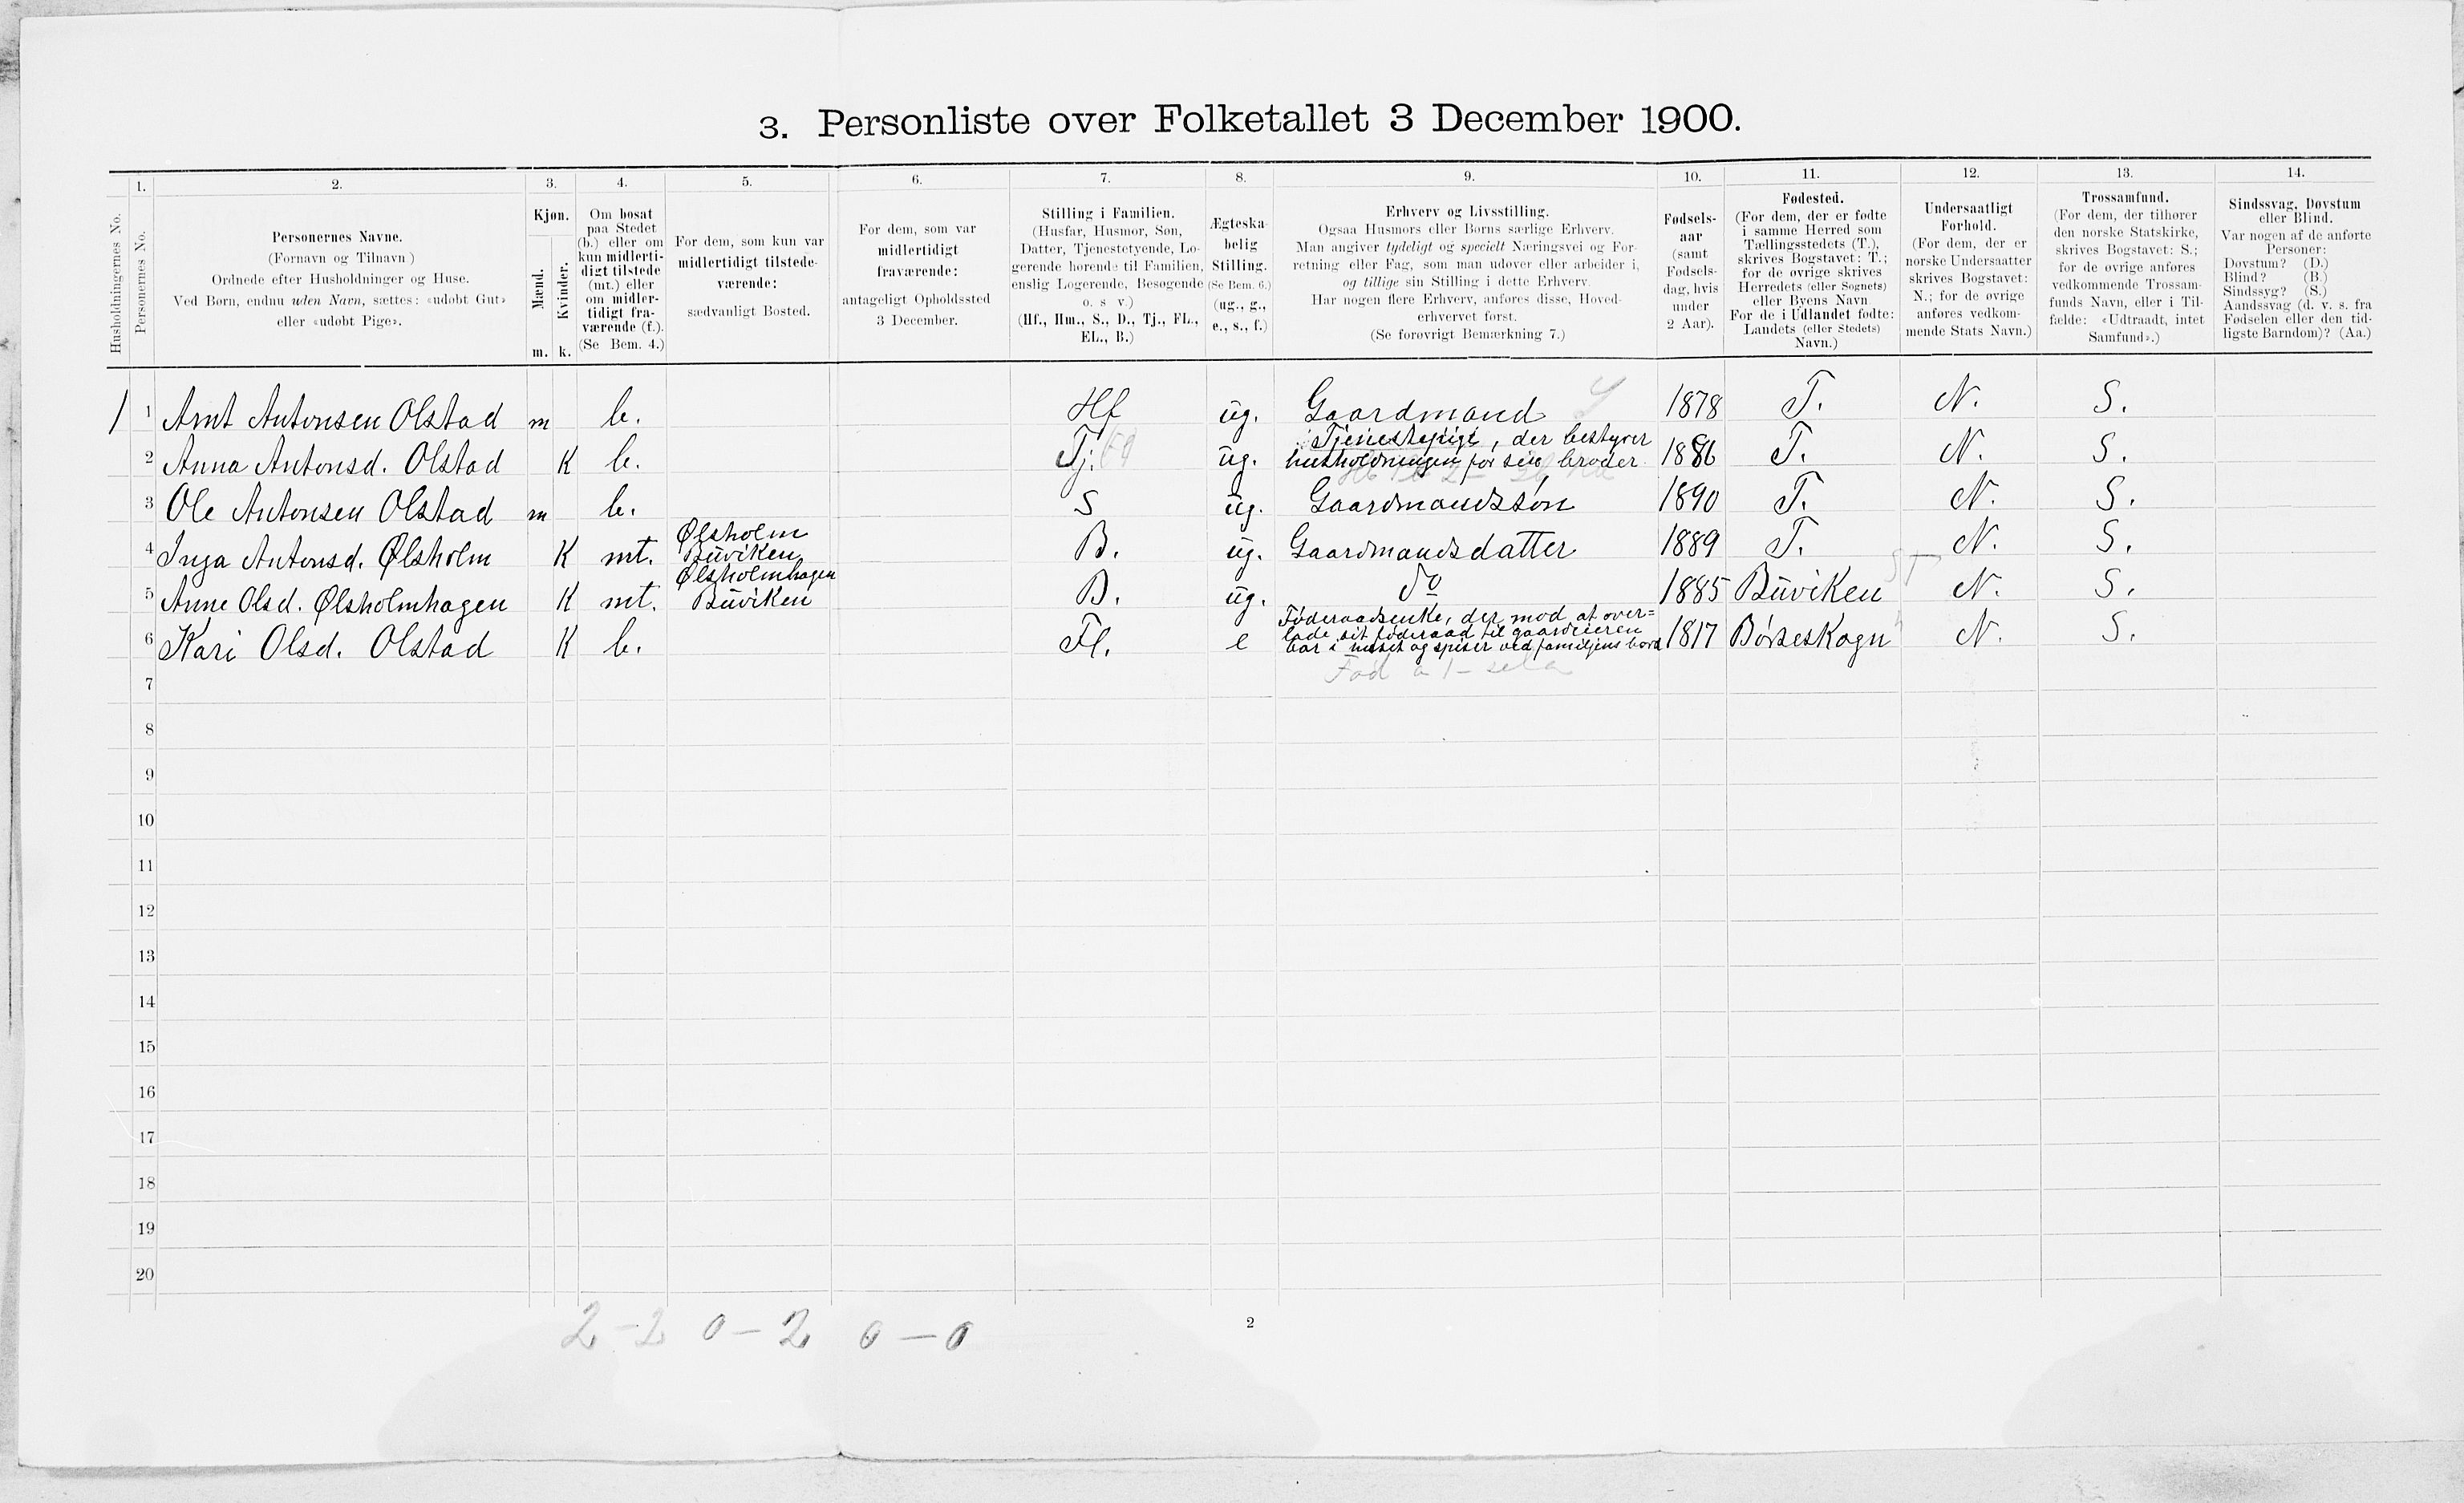 3. Personliste over Folketallet 3 December 1900.
Husholdningernes No.
1.
Personernes No.
2.
Personernes Navne.
(Fornavn og Tilnavn)
Ordnede efter Husholdninger og Huse.
Ved Børn, endnu uden Navn, sættes: «udøbt Gut»
eller «udøbt Pige».
3.
Kjøn.
Mænd.
Kvinder.
m. k.
4.
Om bosat
paa Stedet
(b.) eller om
kun midlerti-
digt tilstede
(mt.) eller
om midler-
tidigt fra-
værende (f.).
(Se Bem. 4.)
5.
For dem, som kun var
midlertidigt tilstede-
værende:
sædvanligt Bosted.
6.
For dem, som var
midlertidigt
fraværende:
antageligt Opholdssted
3 December.
7.
Stilling i Familien.
(Husfar, Husmor, Søn,
Datter, Tjenestetyende, Lo-
gerende hørende til Familien,
enslig Logerende, Besøgende
o. s v.)
(Hf., Hm., S., D., Tj., FL.,
EL., B.)
8.
Ægteska-
belig
Stilling.
(Se Bem. 6.)
(ug., g.,
e., s., f.)
9.
Erhverv og Livsstilling.
Ogsaa Husmors eller Børns særlige Erhverv.
Man angiver tydeligt og specielt Næringsvei og For-
retning eller Fag, som man udøver eller arbeider i,
og tillige sin Stilling i dette Erhverv.
Har nogen flere Erhverv, anføres disse, Hoved-
erhvervet først.
(Se forøvrigt Bemærkning 7.)
10.
Fødsels-
aar
(samt
Fødsels-
dag, hvis
under
2 Aar).
11.
Fødested.
(For dem, der er fødte
i samme Herred som
Tællingsstedets (T.),
skrives Bogstavet: T.;
for de øvrige skrives
Herredets (eller Sognets)
eller Byens Navn
For de i Udlandet fødte:
Landets (eller Stedets)
Navn.)
12.
Undersaatligt
Forhold.
(For dem, der er
norske Undersaatter
skrives Bogstavet:
N.; for de øvrige
anføres vedkom-
mende Stats Navn.)
13.
Trossamfund.
(For dem, der tilhører
den norske Statskirke,
skrives Bogstavet: S.;
for de øvrige anføres
vedkommende Trossam-
funds Navn, eller i Til-
fælde: «Udtraadt, intet
Samfund».)
14.
Sindssvag, Døvstum
eller Blind.
Var nogen af de anførte
Personer:
Døvstum? (D.)
Blind? (B.)
Sindssyg? (S.)
Aandssvag (d. v. s. fra
Fødselen eller den tid-
ligste Barndom)? (Aa.)
1 1 Arnt Antonsen Olstad m b. Hf ug. Gaardmand 1878 T. N. S.
2 Anna Antonsd. Olstad K b. Tj. ug. Tjenestepige, der bestyrer
husholdningen for sin broder. 1886 T. N. S.
3 Ole Antonsen Olstad m b. S ug. Gaardmandssøn 1890 T. N. S.
4 Inga Antonsd. Ølsholm K mt. Ølsholm
Buviken B. ug. Gaardmandsdatter 1889 T. N. S.
5 Anne Olsd. Ølsholmhagen K mt. Ølsholmhagen
Buviken B. ug. do 1885 Buviken N. S.
6 Kari Olsd. Olstad K b. Fl. e Føderaadsenke, der mod at over=
lade sit føderaad til gaardeieren
bor i huset og spiser ved familjens bord 1817 Børseskogn N. S.
7
8
9
10
11
12
13
14
15
16
17
18
19
20
2-2 0-2 0-0
2